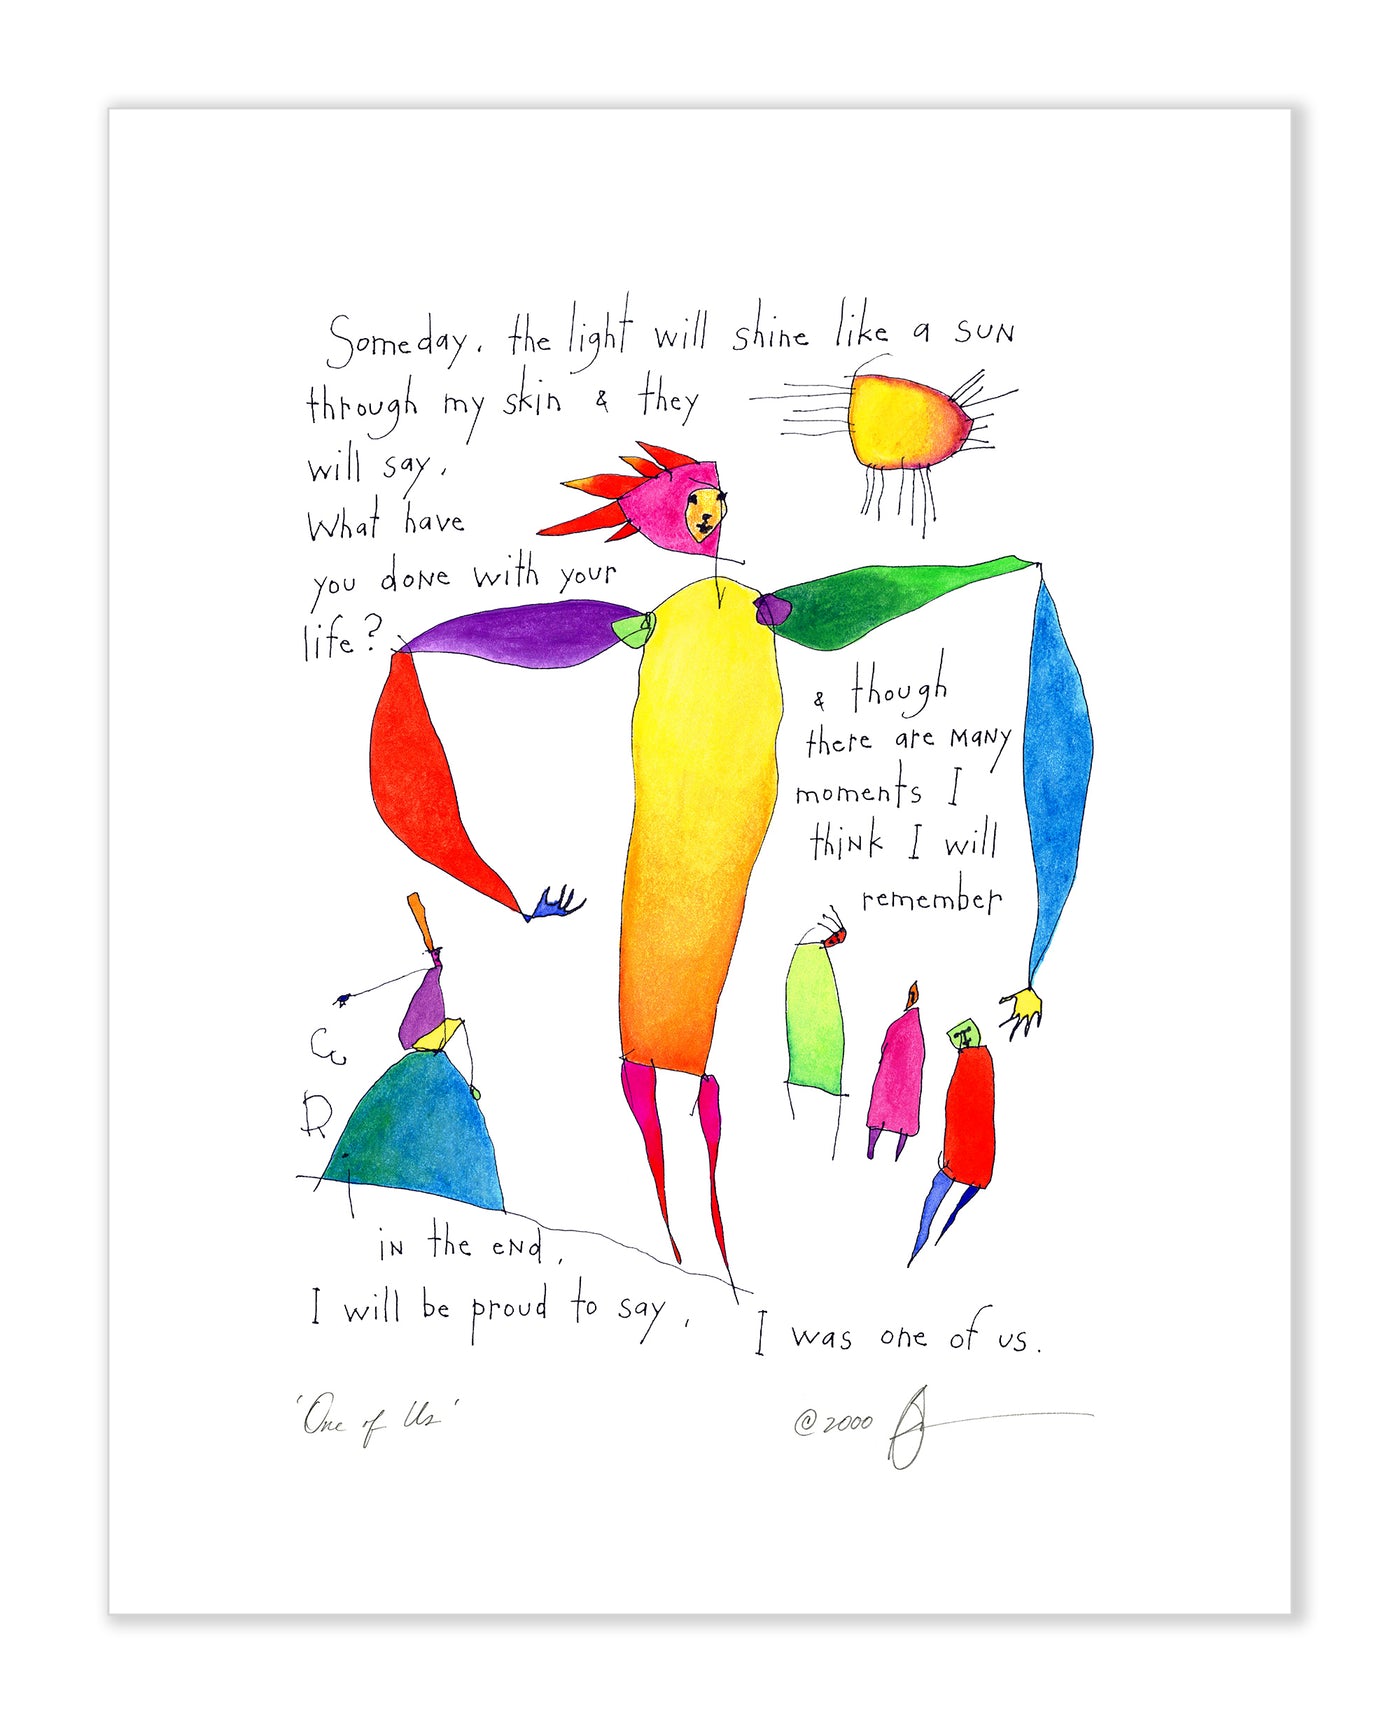 Someday, the light will shine like a sun
through my skin & they
will say,
What have
you done with your
life?
& though
there are many
moments I
think I will
remember
in the end,
I will be proud to say,
I was one of us.
'One of Us'
© 2000